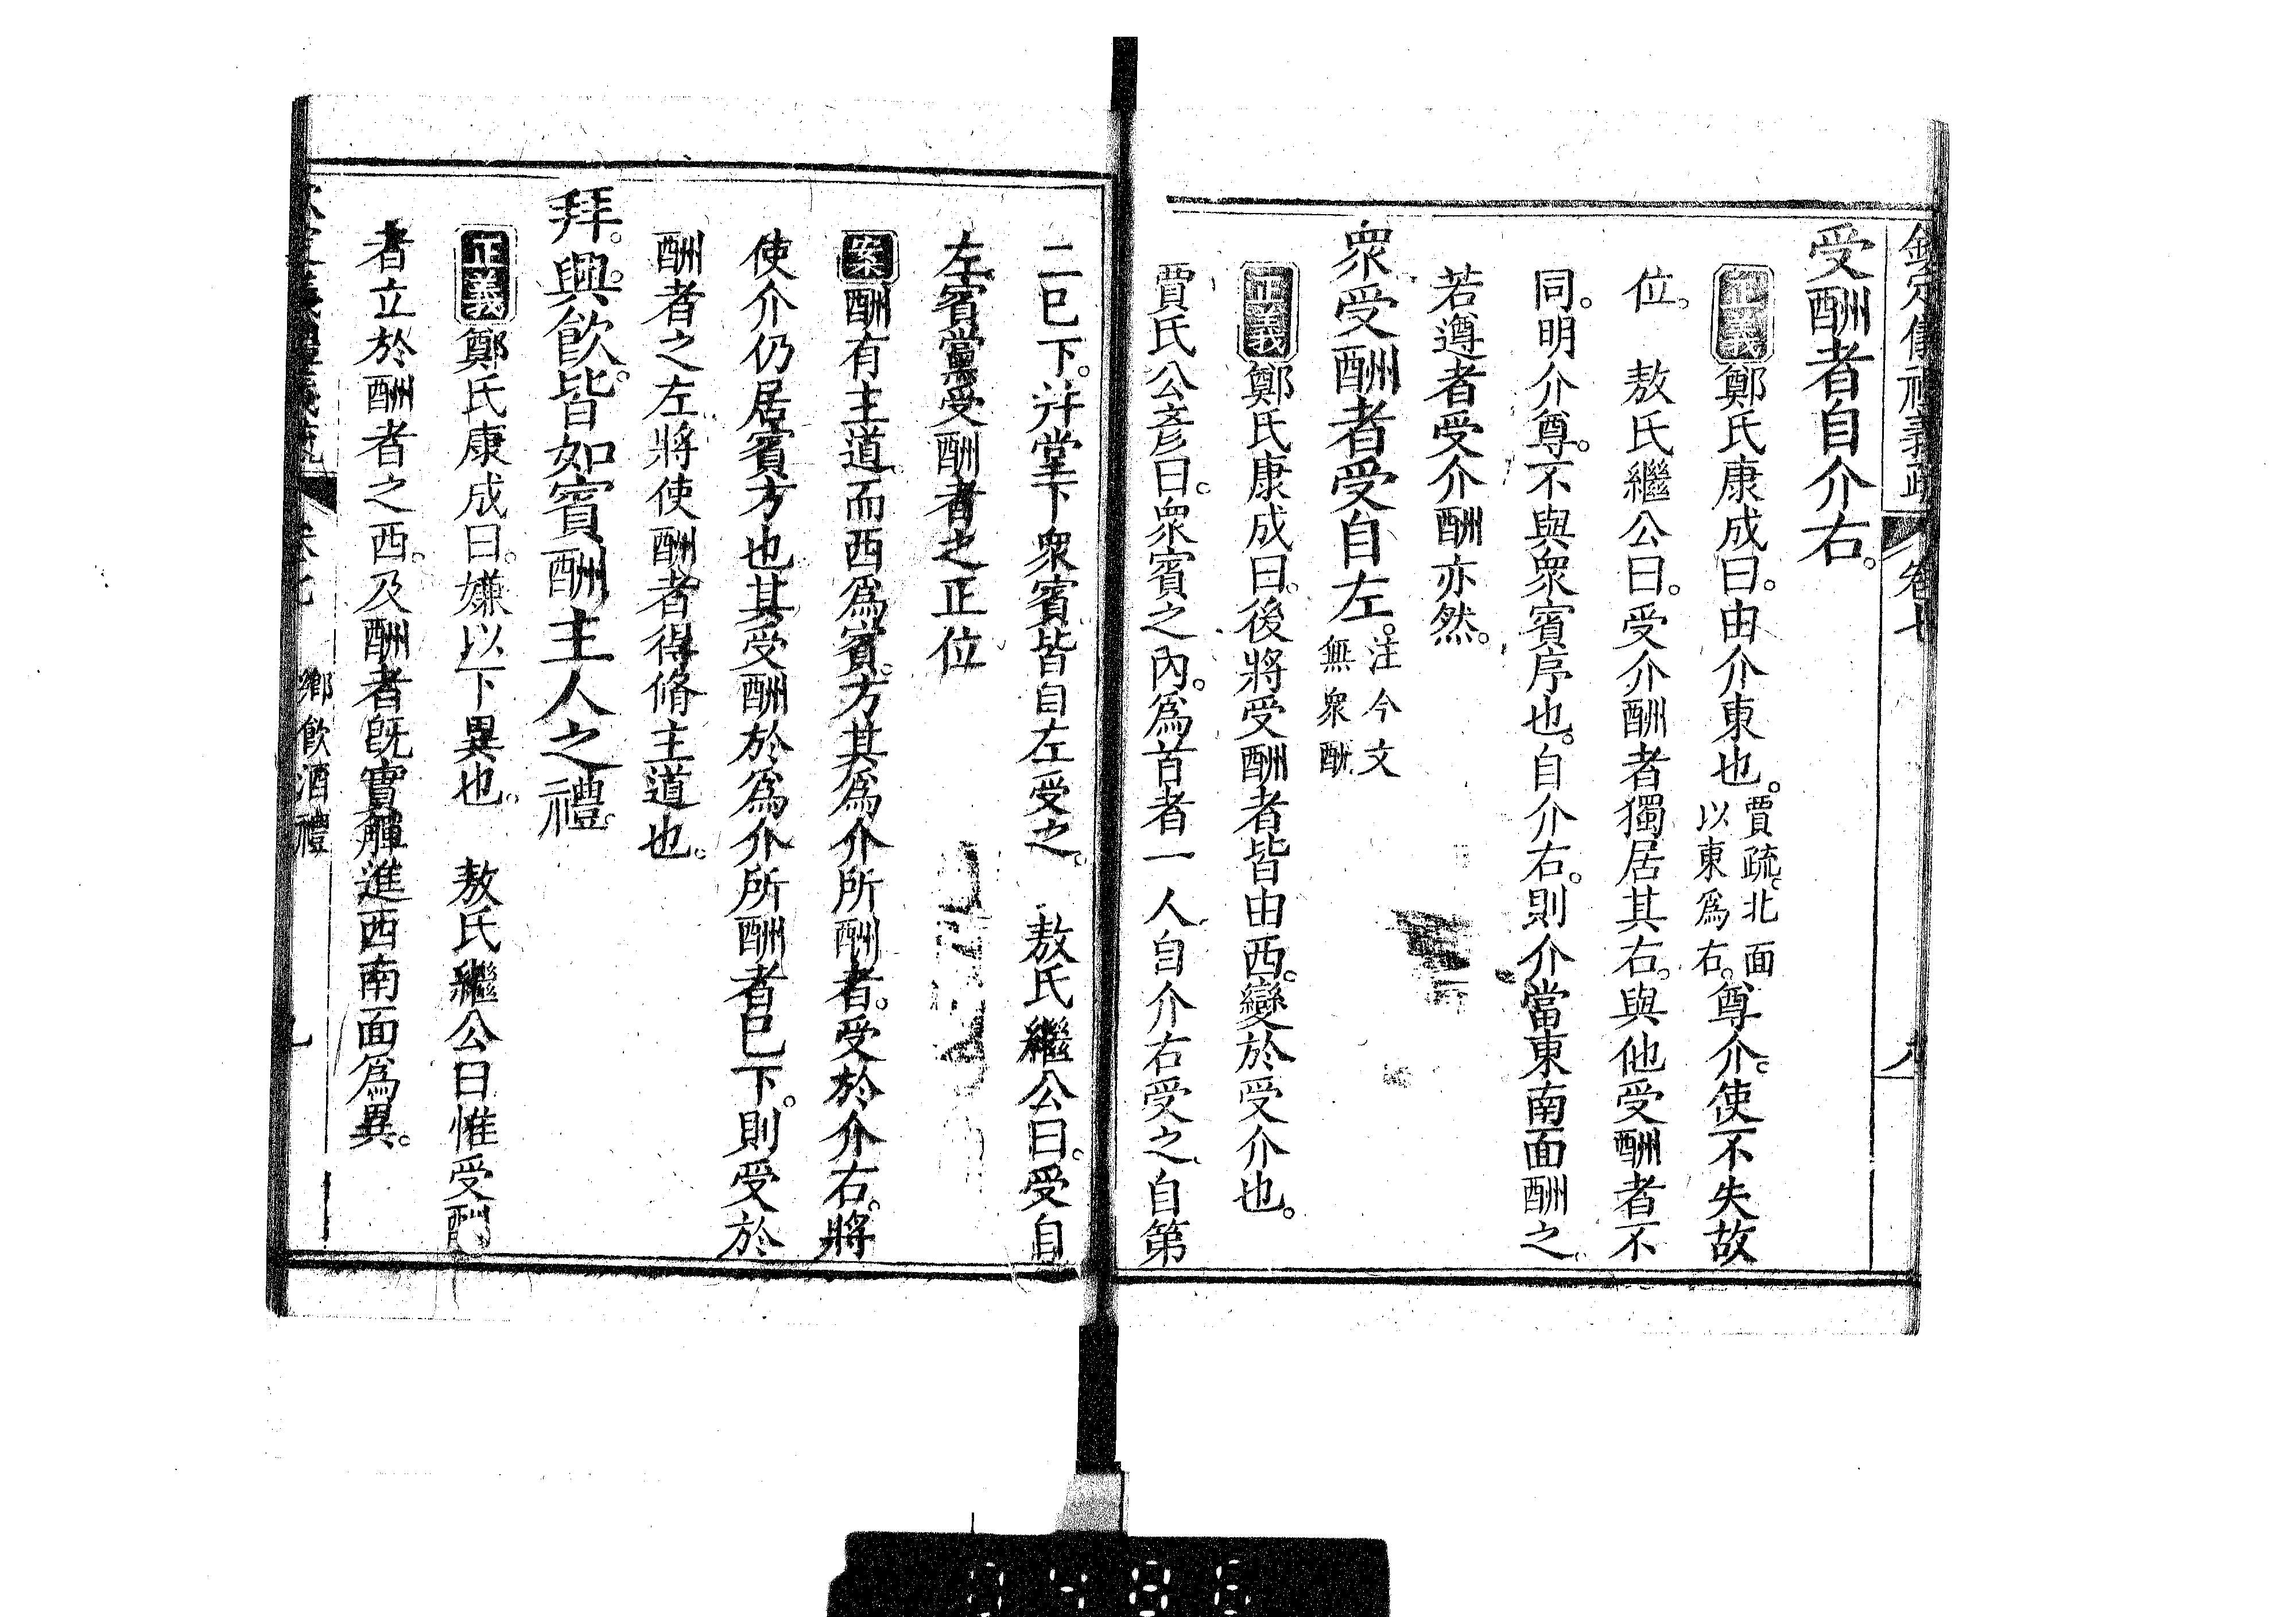 欽定儀禮義疏 卷七 九
受酬者自介右。
正義鄭氏康成曰。由介東也。賈疏。北面以東為右。尊介。使不失故
位。 敖氏繼公曰。受介酬者獨居其右。與他受酬者不
同。明介尊。不與衆賓序也。自介右。則介當東南面酬之。
若遵者受介酬亦然。
衆受酬者受自左。注今文無衆酬。
正義鄭氏康成曰。後將受酬者皆由西。變於受介也。
賈氏公彥曰。衆賓之內。爲首者一人。自介右受之。自第
二已下。并堂下衆賓皆自左受之。 敖氏繼公曰。受自
左。賓黨受酬者之正位。
案酬有主道。而西爲賓。方其爲介所酬者。受於介右。將
使介仍居賓方也。其受酬於爲介所酬者已下。則受於
酬者之左。將使酬者得脩主道也。
拜。興。飮。皆如賓酬主人之禮。
正義鄭氏康成曰。嫌以下異也。 敖氏繼公曰惟受酬
者立於酬者之西。及酬者旣實觶進西南面爲異。
鄉飮酒禮